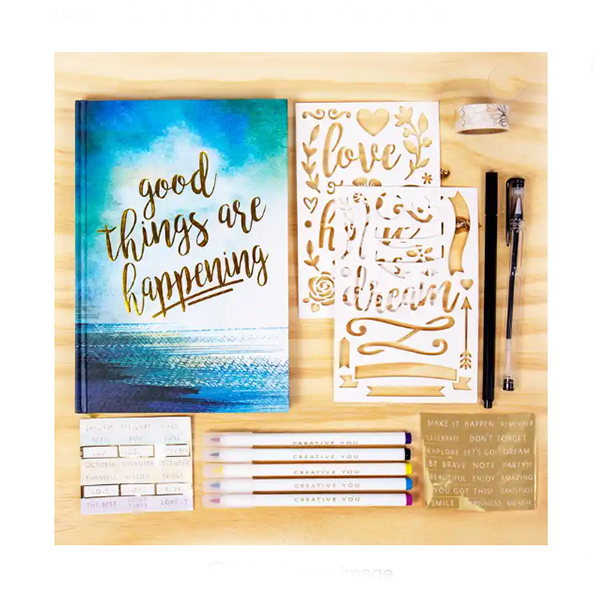 good
things are
happening
love
dream
APRIL MAY JUNE
OCTOBER NOVEMBER DECEMBER
LOVE
THE BEST GOOD TIMES LOVE IT
CREATIVE YOU
CREATIVE YOU
CREATIVE YOU
CREATIVE YOU
CREATIVE YOU
MAKE IT HAPPEN REMEMBER
CELEBRATE DON'T FORGET
EXPLORE LET'S GO! DREAM
BE BRAVE NOTE PARTY!
BEAUTIFUL ENJOY AMAZING
YOU GOT THIS GRATEFUL
SMILE HAPPINESS BREATHE
image